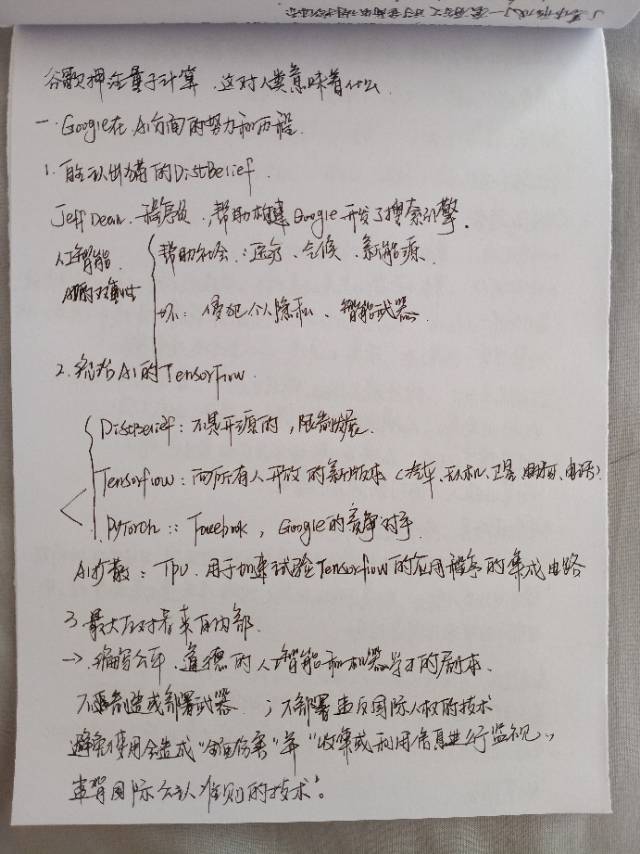 谷歌押注量子计算,这对人类意味着什么
一. Google在AI方面的努力和历程
1. 能认出猫的DistBelief.
Jeff Dean. 程序员,帮助构建Google开发了搜索引擎.
人工智能 帮助社会:医疗、气候、新能源.
坏:侵犯个人隐私、智能武器.
2. AI的Tensorflow.
DistBelief:不是开源的,限制发展.
Tensorflow:向所有人开放的新版本(汽车、无人机、卫星、电话)
PyTorch:: Facebook, Google的竞争对手
AI扩散:TPU. 用于加速试验Tensorflow的应用程序的集成电路
3. 最大反对者来自内部.
→. 编写公平、道德的人工智能和机器学习的副本.
不要制造或部署武器 ;不部署违反国际人权的技术
避免使用会造成"全面伤害"并"收集或利用信息进行监视,
违背国际公认准则的技术"。